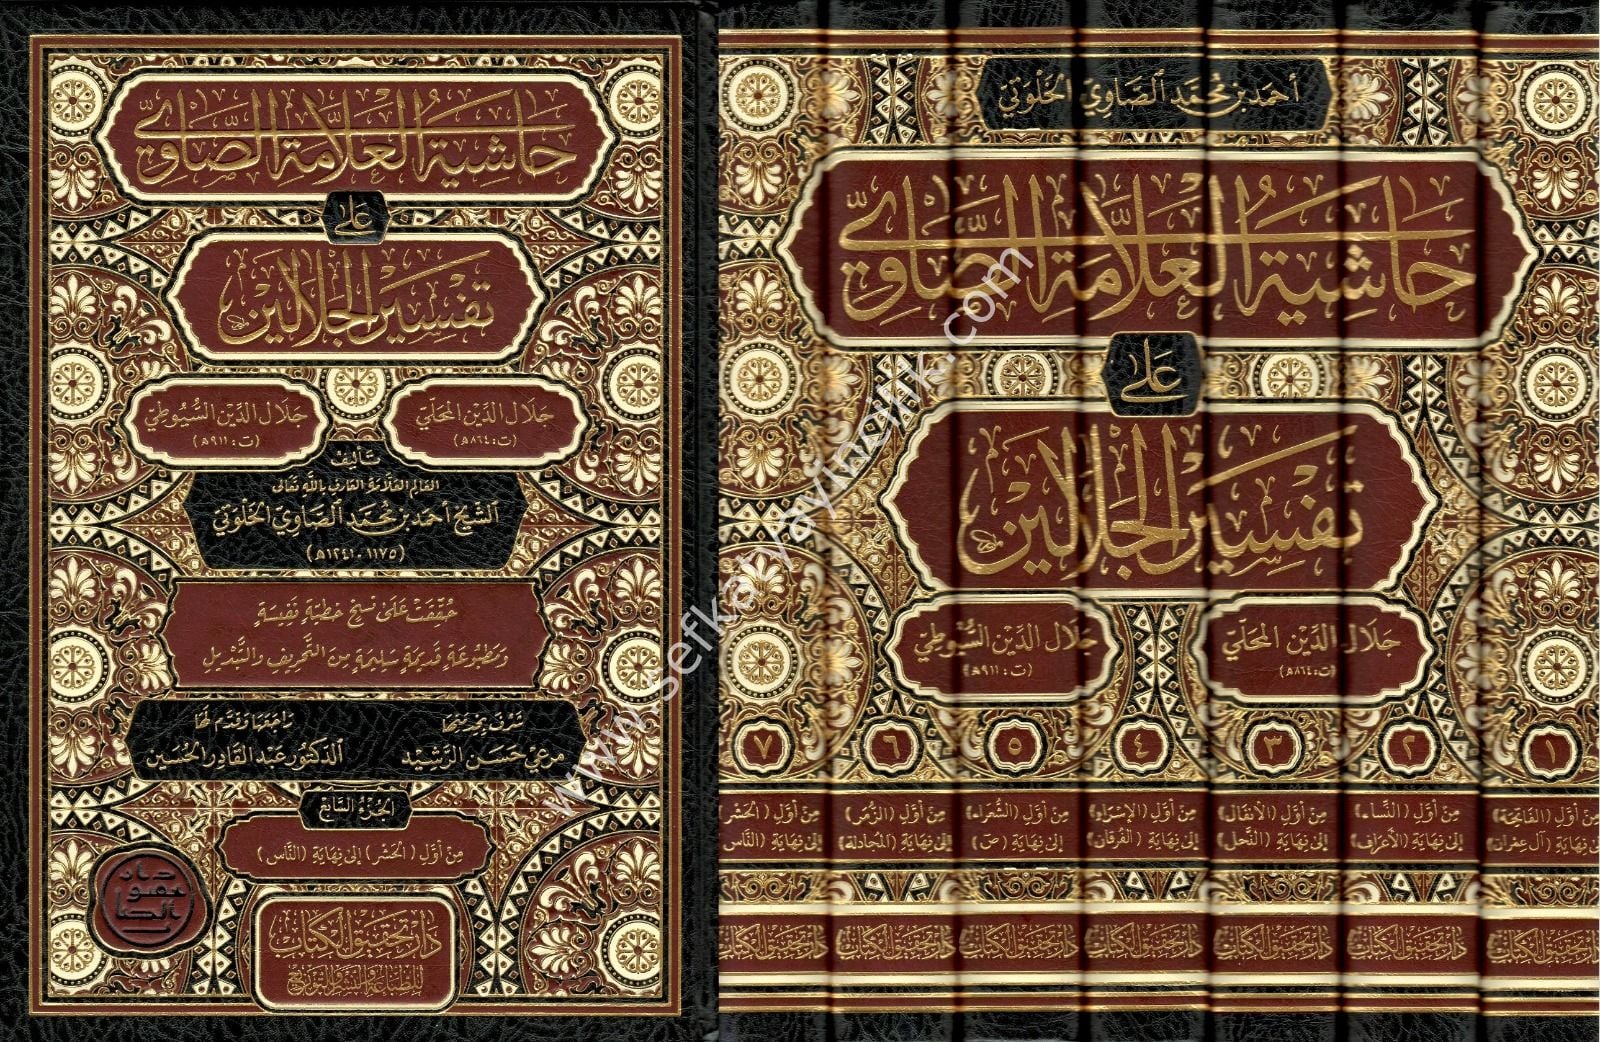 حاشية العلامة الصاوي
على
تفسير الجلالين
جلال الدين المحلي
(ت: ٨٦٤ هـ)
جلال الدين السيوطي
(ت: ٩١١ هـ)
تأليف
العالم العلامة العارف بالله تعالى
الشيخ أحمد بن محمد الصاوي الخلوتي
(١١٧٥ - ١٢٤١ هـ)
حُقِّقَتْ عَلَى نُسَخٍ خَطِّيَّةٍ نَفِيسَةٍ
وَمَطْبُوعَةٍ قَدِيمَةٍ سَلِيمَةٍ مِنَ التَّحْرِيفِ وَالتَّبْدِيلِ
تشرف بخدمتها
مرعي حسن الرشيد
راجعها وقدم لها
الدكتور عبد القادر الحسين
الجزء السابع
من أول (الحشر) إلى نهاية (الناس)
دار تحقيق الكتاب
للطباعة والنشر والتوزيع
أحمد بن محمد الصاوي الخلوتي
حاشية العلامة الصاوي
على
تفسير الجلالين
جلال الدين المحلي
(ت: ٨٦٤ هـ)
جلال الدين السيوطي
(ت: ٩١١ هـ)
١
٢
٣
٤
٥
٦
٧
من أول (الفاتحة)
إلى نهاية (آل عمران)
من أول (النساء)
إلى نهاية (الأعراف)
من أول (الأنفال)
إلى نهاية (النحل)
من أول (الإسراء)
إلى نهاية (الفرقان)
من أول (الشعراء)
إلى نهاية (ص)
من أول (الزمر)
إلى نهاية (المجادلة)
من أول (الحشر)
إلى نهاية (الناس)
دار تحقيق الكتاب
دار تحقيق الكتاب
دار تحقيق الكتاب
دار تحقيق الكتاب
دار تحقيق الكتاب
دار تحقيق الكتاب
دار تحقيق الكتاب
www.sefkatyayincilik.com